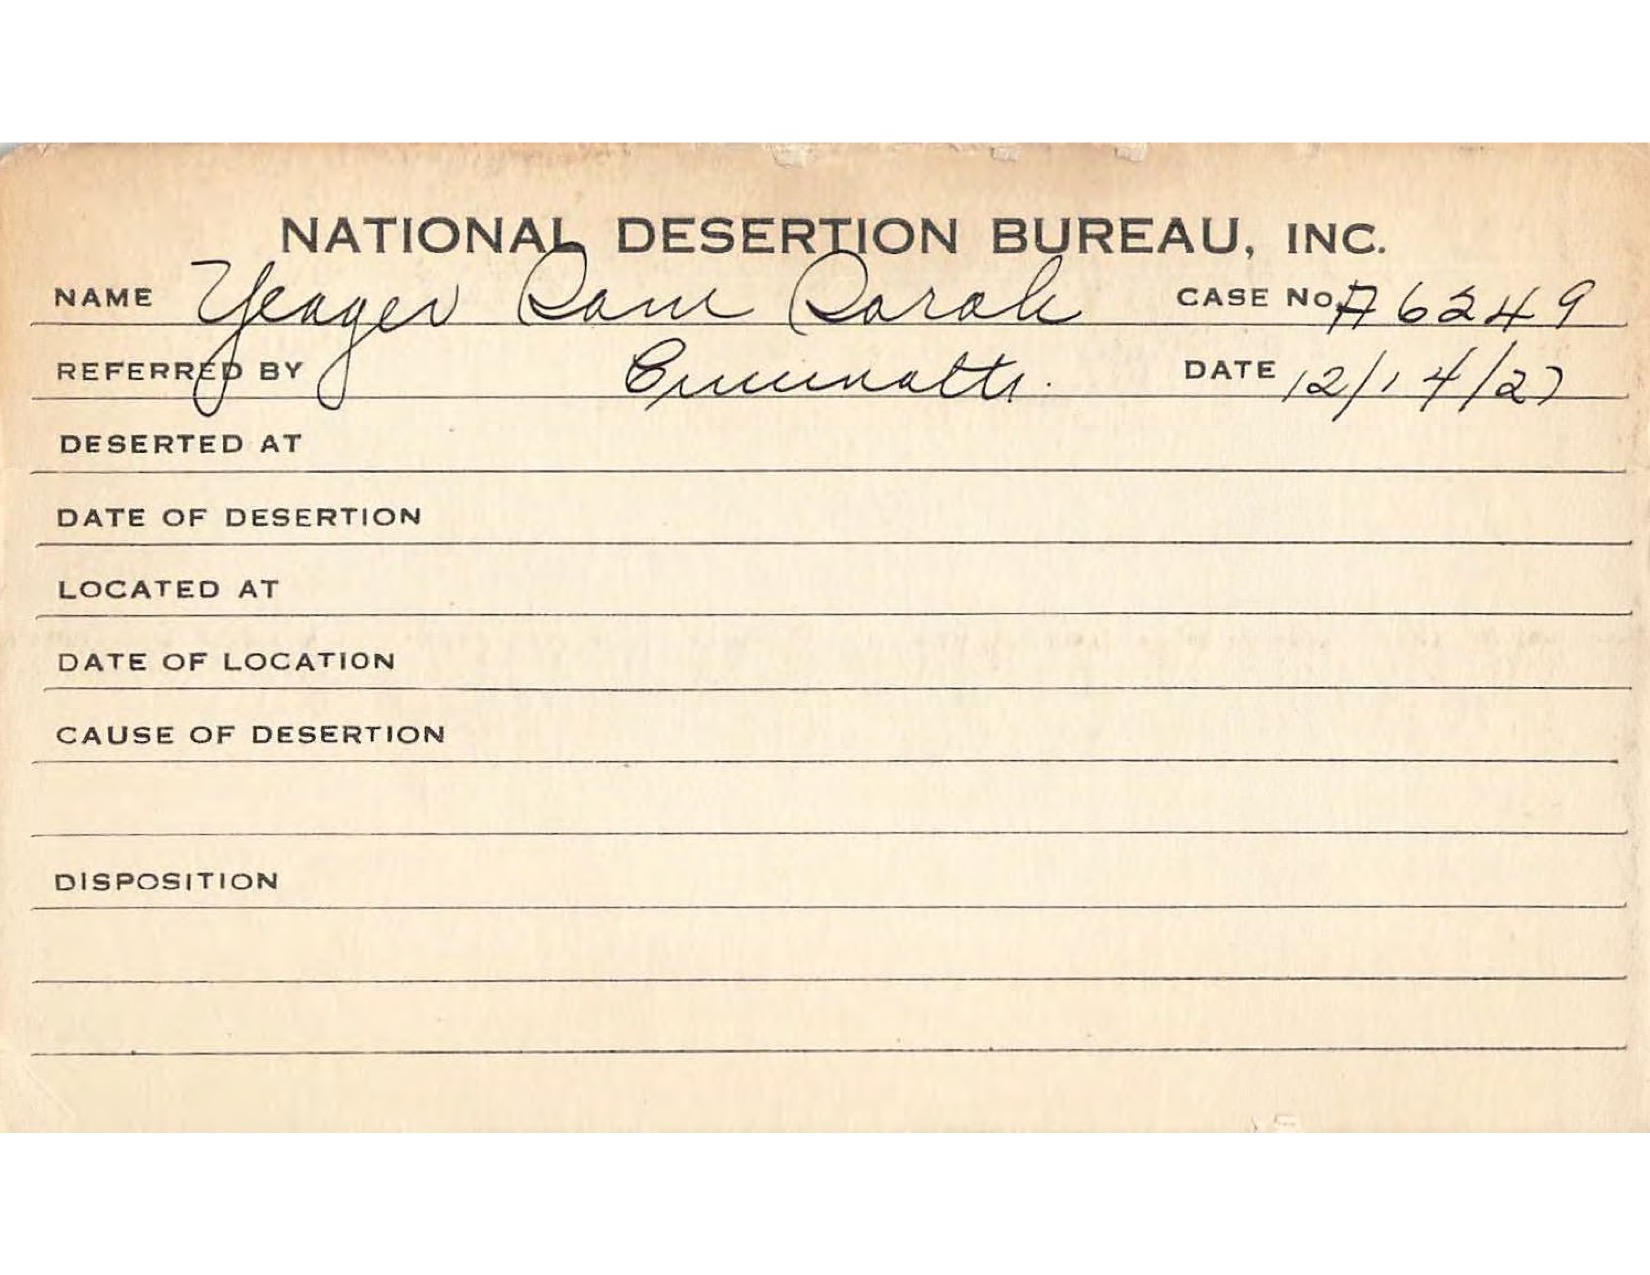 NATIONAL DESERTION BUREAU, INC.
NAME Yeager Sam Sarah CASE No. A6249
REFERRED BY Cincinnatti. DATE 12/14/27
DESERTED AT
DATE OF DESERTION
LOCATED AT
DATE OF LOCATION
CAUSE OF DESERTION
DISPOSITION